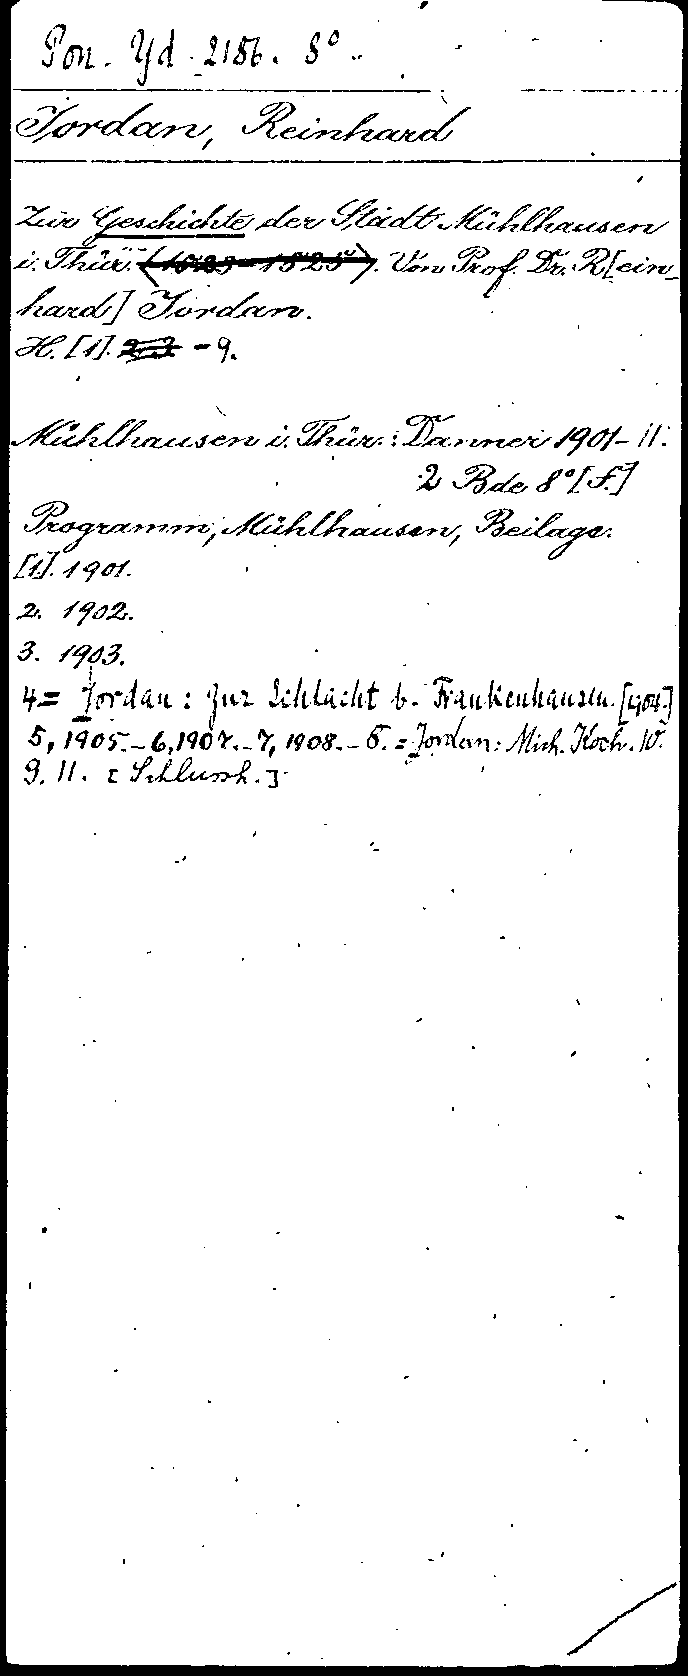 Pon. Yd 2186. 8°
Jordan, Reinhard
Zur Geschichte der Stadt Mühlhausen
i. Thür. (1523-1525). Von Prof. Dr. R[ein-
hard] Jordan.
H. [1]. 2.3 -9.
Mühlhausen i. Thür.: Danner 1901-11.
2 Bde 8° [F.]
Programm, Mühlhausen, Beilage.
[1]. 1901.
2. 1902.
3. 1903.
4= Jordan: Zur Schlacht b. Frankenhausen. [1904.]
5, 1905.-6, 1907.-7, 1908.-8.=Jordan: Mich. Koch. 10.
9. 11. [Schlussh.]